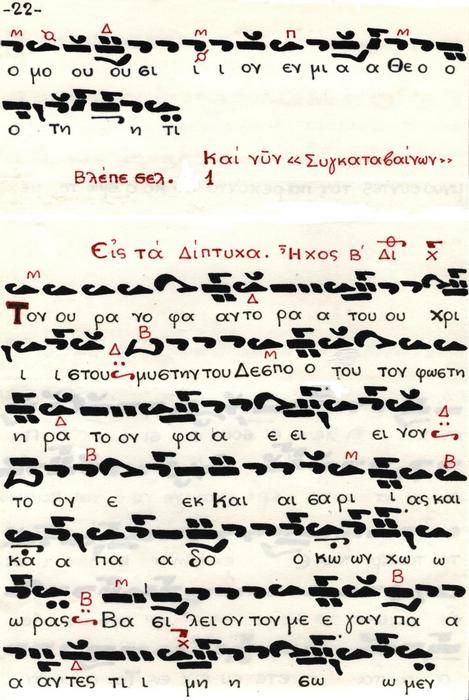 -22-
ο μο ου ου σι ι ι ον εν μι α α Θε ο ο
ο τη η τι
Καί νῦν «Συγκαταβαίνων»
Βλέπε σελ. 1
Εἰς τά Δίπτυχα. Ἦχος Β΄ Δι
Τον ου ρα νο φα αν το ρα α του ου χρι
ι ι στου μυστην του Δεσπο ο του τον φωστη
η ρα το ον φα α ε ει ει νον
το ον ε εκ Και αι σα ρι ι ας και
κα α πα α δο ο κω ων χω ω
ω ρας Βα σι λει ον τον με ε γαν πα α
α αν τες τι ι μη η σω ω μεν